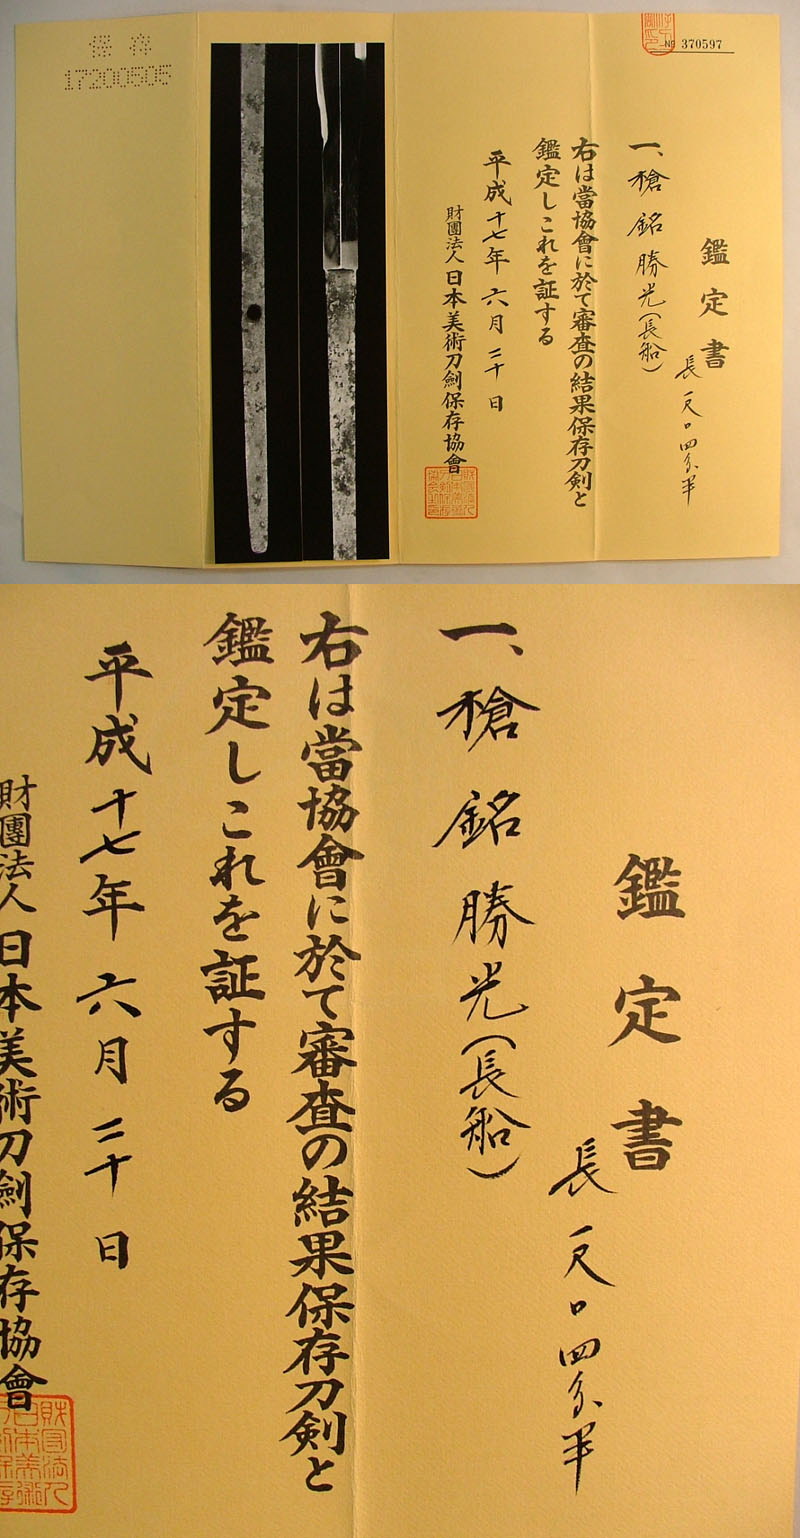 保存
17200505
№ 370597
鑑定書
長一尺〇四分半
一、槍銘勝光(長船)
右は當協會に於て審査の結果保存刀剣と
鑑定しこれを証する
平成十七年六月二十日
財團法人日本美術刀劍保存協會
鑑定書
長一尺〇四分半
一、槍銘勝光(長船)
右は當協會に於て審査の結果保存刀剣と
鑑定しこれを証する
平成十七年六月二十日
財團法人日本美術刀劍保存協會